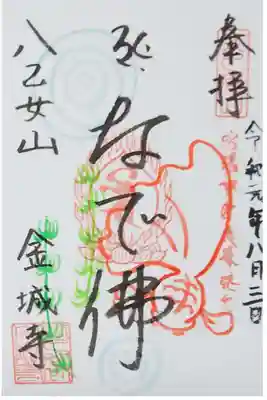 奉拝
令和元年八月二日
なで佛
八乙女山
金城寺